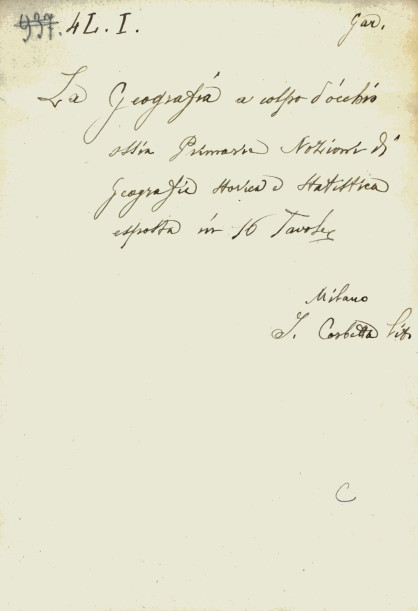 937. 4 L. I. Gar.
La Geografia a colpo d'occhio
ossia Primarie Nozioni di
Geografia Storica e Statistica
esposta in 16 Tavole
Milano
Corbetta Lit.
C